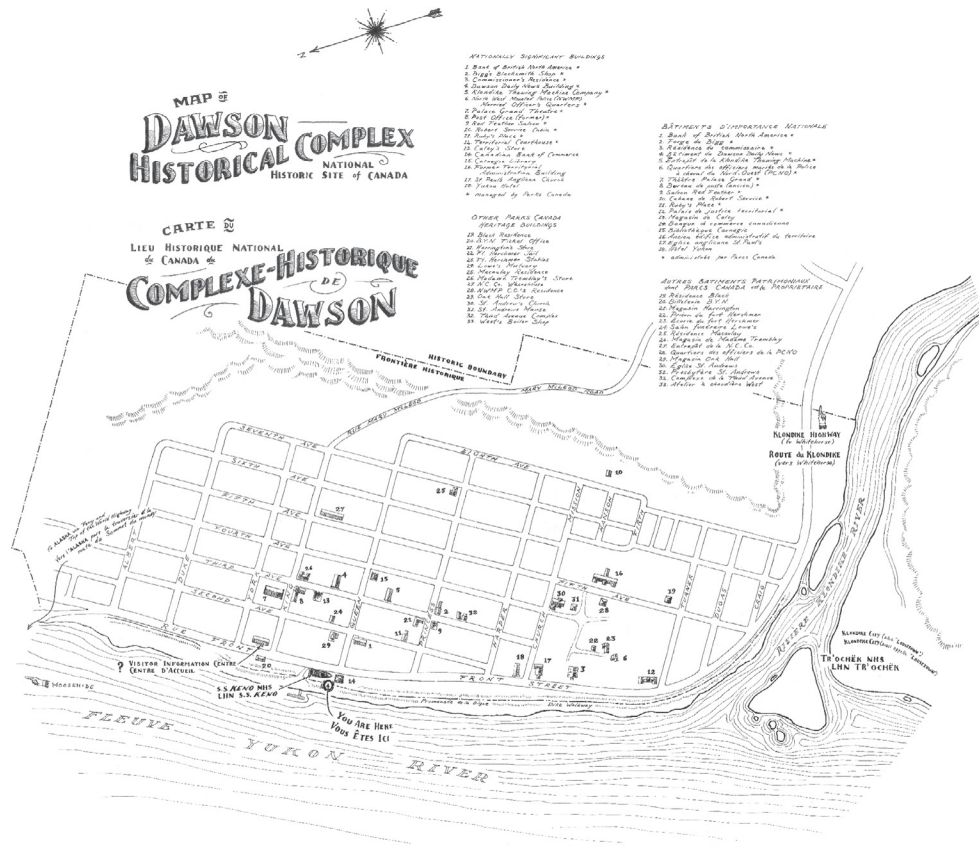 N
MAP OF
DAWSON
HISTORICAL COMPLEX
NATIONAL
HISTORIC SITE OF CANADA
CARTE DU
LIEU HISTORIQUE NATIONAL
du CANADA du
COMPLEXE-HISTORIQUE
DE
DAWSON
NATIONALLY SIGNIFICANT BUILDINGS
1. Bank of British North America *
2. Bigg's Blacksmith Shop *
3. Commissioner's Residence *
4. Dawson Daily News Building *
5. Klondike Thawing Machine Company *
6. North West Mounted Police (NWMP)
Married Officer's Quarters *
7. Palace Grand Theatre *
8. Post Office (Former) *
9. Red Feather Saloon *
10. Robert Service Cabin *
11. Ruby's Place *
12. Territorial Courthouse *
13. Caley's Store
14. Canadian Bank of Commerce
15. Carnegie Library
16. Former Territorial
Administration Building
17. St Paul's Anglican Church
18. Yukon Hotel
* managed by Parks Canada
OTHER PARKS CANADA
HERITAGE BUILDINGS
19. Black Residence
20. B.Y.N. Ticket Office
21. Harrington's Store
22. Ft. Herchmer Jail
23. Ft. Herchmer Stables
24. Lowe's Mortuary
25. Macaulay Residence
26. Madame Tremblay's Store
27. N.C. Co. Warehouse
28. NWMP C.O.'s Residence
29. Oak Hall Store
30. St. Andrew's Church
31. St. Andrews Manse
32. Third Avenue Complex
33. West's Boiler Shop
BÂTIMENTS D'IMPORTANCE NATIONALE
1. Bank of British North America *
2. Forge de Bigg *
3. Résidence du commissaire *
4. Bâtiment du Dawson Daily News *
5. Entrepôt de la Klondike Thawing Machine *
6. Quartiers des officiers mariés de la Police
à cheval du Nord-Ouest (PCNO) *
7. Théâtre Palace Grand *
8. Bureau de poste (ancien) *
9. Saloon Red Feather *
10. Cabane de Robert Service *
11. Ruby's Place *
12. Palais de justice territorial *
13. Magasin de Caley
14. Banque de commerce canadienne
15. Bibliothèque Carnegie
16. Ancien édifice administratif du territoire
17. Église anglicane St. Paul's
18. Hôtel Yukon
* administrés par Parcs Canada
AUTRES BÂTIMENTS PATRIMONIAUX
dont PARCS CANADA est le PROPRIÉTAIRE
19. Résidence Black
20. Billetterie B.Y.N.
21. Magasin Harrington
22. Prison du fort Herchmer
23. Écurie du fort Herchmer
24. Salon funéraire Lowe's
25. Résidence Macaulay
26. Magasin de Madame Tremblay
27. Entrepôt de la N.C. Co.
28. Quartiers des officiers de la PCNO
29. Magasin Oak Hall
30. Église St. Andrews
31. Presbytère St. Andrews
32. Complexe de la Third Avenue
33. Atelier à chaudière West
HISTORIC BOUNDARY
FRONTIÈRE HISTORIQUE
MARY MCLEOD ROAD
RUE MARY MCLEOD
KLONDIKE HIGHWAY
(to Whitehorse)
ROUTE du KLONDIKE
(vers Whitehorse)
SEVENTH AVE
EIGHTH AVE
SIXTH AVE
FIFTH AVE
FOURTH AVE
THIRD AVE
SECOND AVE
FIFTH AVE
RUE FRONT
FRONT STREET
ALBERT
DUKE
YORK
QUEEN
PRINCESS
HARPER
CHURCH
MISSION
HANSON
TURNER
DUGAS
CRAIG
To ALASKA via Ferry and
Top of the World Highway
Vers l'ALASKA par la traversée & la
route du Sommet du monde
10
25
27
26
4
15
7
8
13
5
24
29
1
21
2
32
9
11
16
30
31
28
19
22
23
6
18
17
3
12
20
14
? VISITOR INFORMATION CENTRE
CENTRE D'ACCUEIL
S.S. KENO NHS
LHN S.S. KENO
YOU ARE HERE
VOUS ÊTES ICI
MOOSEHIDE
Promenade de la digue
Dike Walkway
FLEUVE YUKON RIVER
RIVIÈRE KLONDIKE RIVER
KLONDIKE CITY (aka "LOUSETOWN")
TR'OCHËK NHS
LHN TR'OCHËK